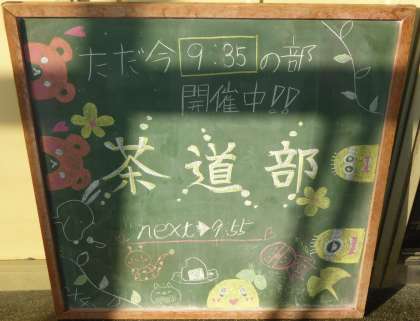 ただ今 9:35 の部
開催中!!
茶道部
next→9:55